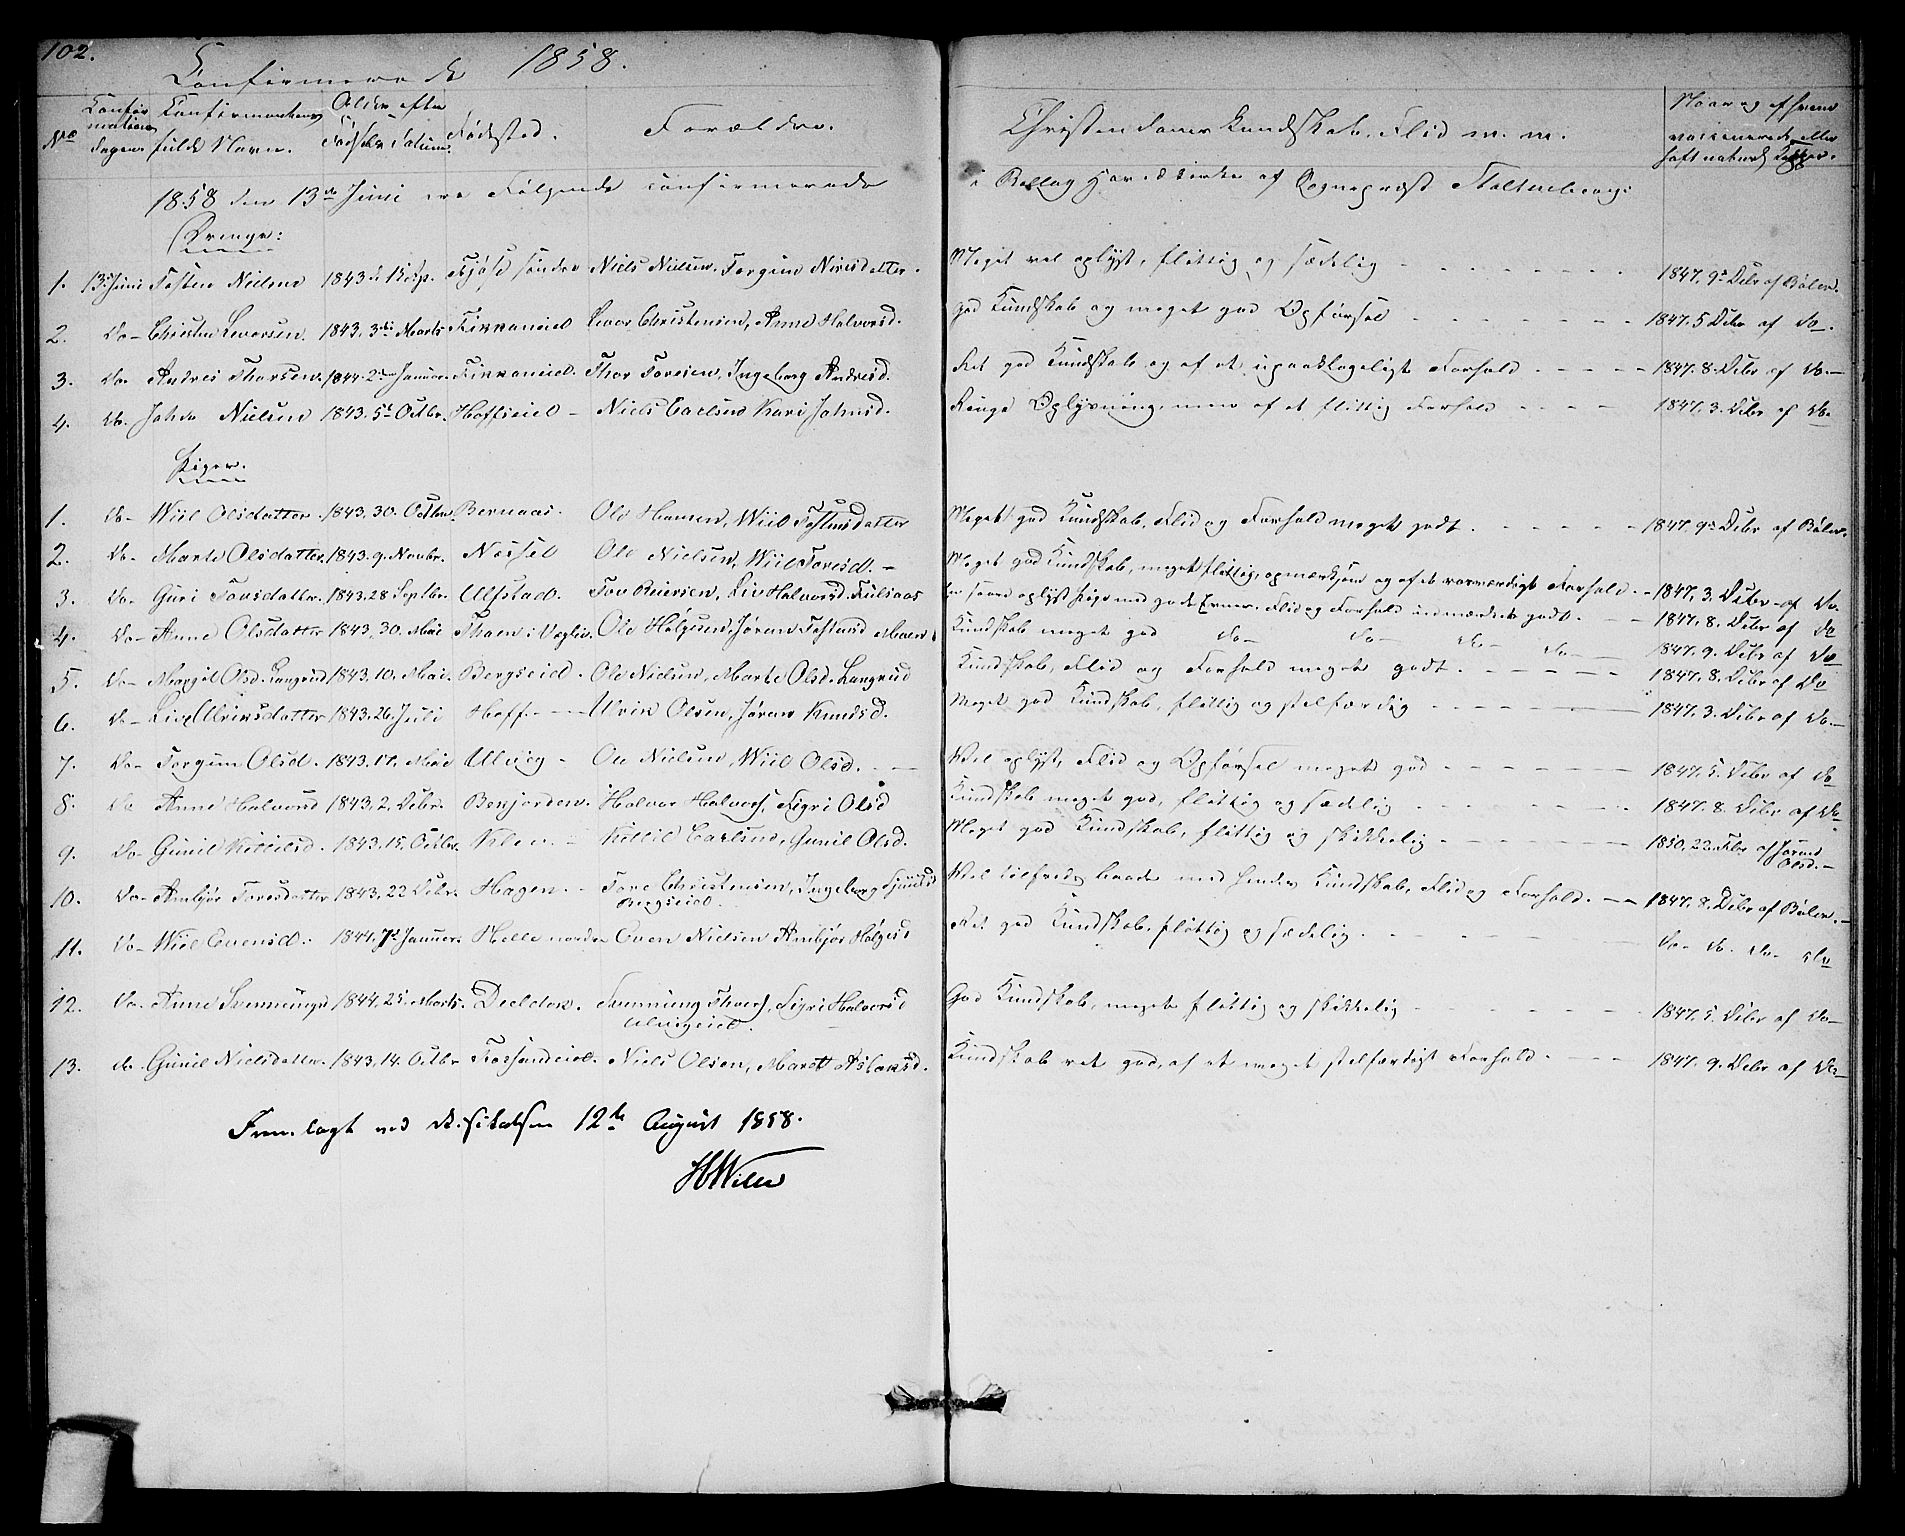 102.
Confirmerede 1858.
No Confirmations Dagen Confirmandernes fulde Navn. Alder efter Fødsels Datum. Fødested. Forældre. Christendoms Kundskab, Flid m. m. Naar og af hvem vaccinerede eller haft naturl Kopper.
1858 den 13de Juni ere Følgende confirmerede i Kirke af Sognepræst Stoltenberg:
Drenge:
1. 13 Juni Tosten Nielsen 1843 Kjøse søndre Niels Nielsen, Torgun Nirisdatter. Meget vel oplyst, flittig og sædelig 1847. 9 Debr af Bølen.
2. do- Christen Levorsen. 1843, 3de Marts Levor Christensen, Anne Halvorsd. god Kundskab og meget god Opførsel 1847. 5 Debr af do.
3. do. Andreas Thorsen. 1844. 2den Januar. Thor Toresen, Ingeborg Andresd. Ret god Kundskab og af et upaaklageligt Forhold 1847. 8. Debr af do.
4. do. John Nielsen 1843. 5t Octbr. Hoffseiel Niels Carlsen Kari Johnsd. Ringe Oplysning, men af et flittig Forhold 1847. 3. Debr af do.
Piger.
1. do- Wiil Olsdatter. 1843, 30. Octbr. Bernaas. Ole Hansen, Wiil Tostensdatter Meget god Kundskab, Flid og Forhold meget godt. 1847. 9 Debr af Bølen.
2. do- Marte Olsdatter. 1843. 9. Novbr. Næsset Ole Nielsen, Wiil Toresd. Meget god Kundskab, meget flittig, opmærksom og af et roesværdigt Forhold. 1847. 3. Debr. af do.
3. do- Guri Tovsdatter. 1843. 28 Septbr. Ulfstad. Tov Reiersen, Liv Halvorsd. Juliaas En særd oplyst Pige med gode Evner. Flid og Forhold udmærket godt. 1847. 8. Debr af do
4. do- Anne Olsdatter 1843, 30. Mai Thoen i Veglie. Ole Helgesen, Jøran Tostensd Moen Kundskab meget god do- do- do- do- 1847. 9. Debr af do
5. do- Margit Olsd. Langrud 1843. 10. Mai. Bergseiel. Ole Nielsen, Marte Olsd. Langrud Kundskab, Flid og Forhold meget godt. 1847. 8. Debr af do
6. do- Live Ulriksdatter 1843. 26. Juli Hoff. Ulrik Olsen, Jøran Knudsd. Meget god Kundskab, flittig og stelfærdig 1847. 3. Debr af do.
7. do- Torgun Olsd. 1843. 17. Mai Ulvig Ole Nielsen, Wiil Olsd. Vel oplyst, Flid og Opførsel meget god 1847. 5. Debr af do
8. do Anne Halvorsd 1843. 2. Debr. Benjorden. Halvor Halvors, Sigri Olsd Kundskab meget god, flittig og sædelig 1847. 8. Debr af do
9. do- Gunil Killielsd. 1843. 15. Octbr. Killiel Carlsen, Gunil Olsd. Meget god Kundskab, flittig og skikkelig 1850. 22. Febr. af Jørund Olsd.
10. do- Ambjør Toresdatter 1843, 22 Debr. Hagen. Tore Christensen, Ingeborg Bergseiel. Vel tilfreds baade med hendes Kundskab, Flid og Forhold. 1847. 8. Debr af Bølen.
11. do- Wiil Evensd. 1844. 7d Januar. Helle nordre Even Nielsen Ambjør Helgesd Ret god Kundskab, flittig og sædelig. do- do. do. do
12. do. Anne Svenningsd 1844. 25 Marts. Deeldok. Svenning Thors, Sigri Halvorsd Ulvigeiel. God Kundskab, meget flittig og skikkelig 1847. 5. Debr af do
13. do. Gunil Nielsdatter. 1843. 14. Octbr Niels Olsen, Marett Aslaksd. Kundskab ret god, af et meget stelfærdigt Forhold. 1847. 9. Debr af do
Fremlagt ved Visitatsen 12te August 1858.